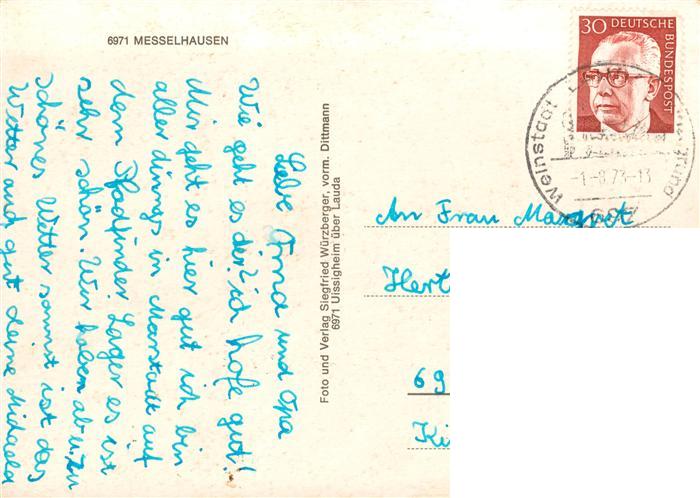 6971 MESSELHAUSEN
Liebe Oma und Opa
Wie geht es dir? ich hofe gut!
Mir geht es hier gut ich bin
aller dinngs in Marstadt auf
dem Pfadfinder Lager es ist
sehr schön. Wir haben ab u. zu
schönes Wetter sonnst ist das
Wetter auch gut deine
Foto und Verlag Siegfried Würzberger, vorm. Dittmann
6971 Uissigheim über Lauda
30 DEUTSCHE BUNDESPOST
Weinstadt
-1.-8.73-13
697
An Frau Margret
Hert
69
Ki